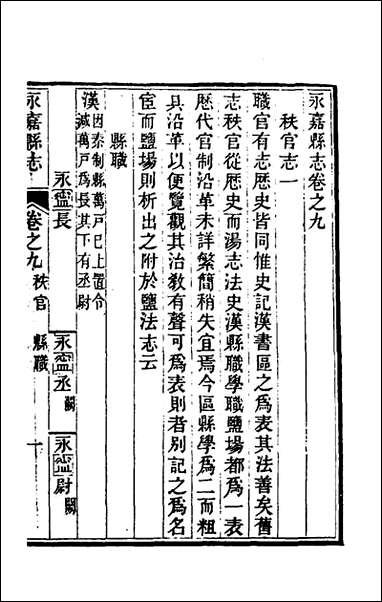 永嘉縣志卷之九
秩官志一
職官有志歷史皆同惟史記漢書區之爲表其法善矣舊
志秩官從歷史而湯志法史漢縣職學職鹽場都爲一表
歷代官制沿革未詳繁簡稍失宜焉今區縣學爲二而粗
具沿革以便覽觀其治教有聲可爲表則者別記之爲名
宦而鹽場則析出之附於鹽法志云
縣職
漢因秦制縣萬戸已上置令
減萬戸爲長其下有丞尉
永寍長 永寍丞闕 永寍尉闕
永嘉縣志 卷之九 秩官 縣職 一